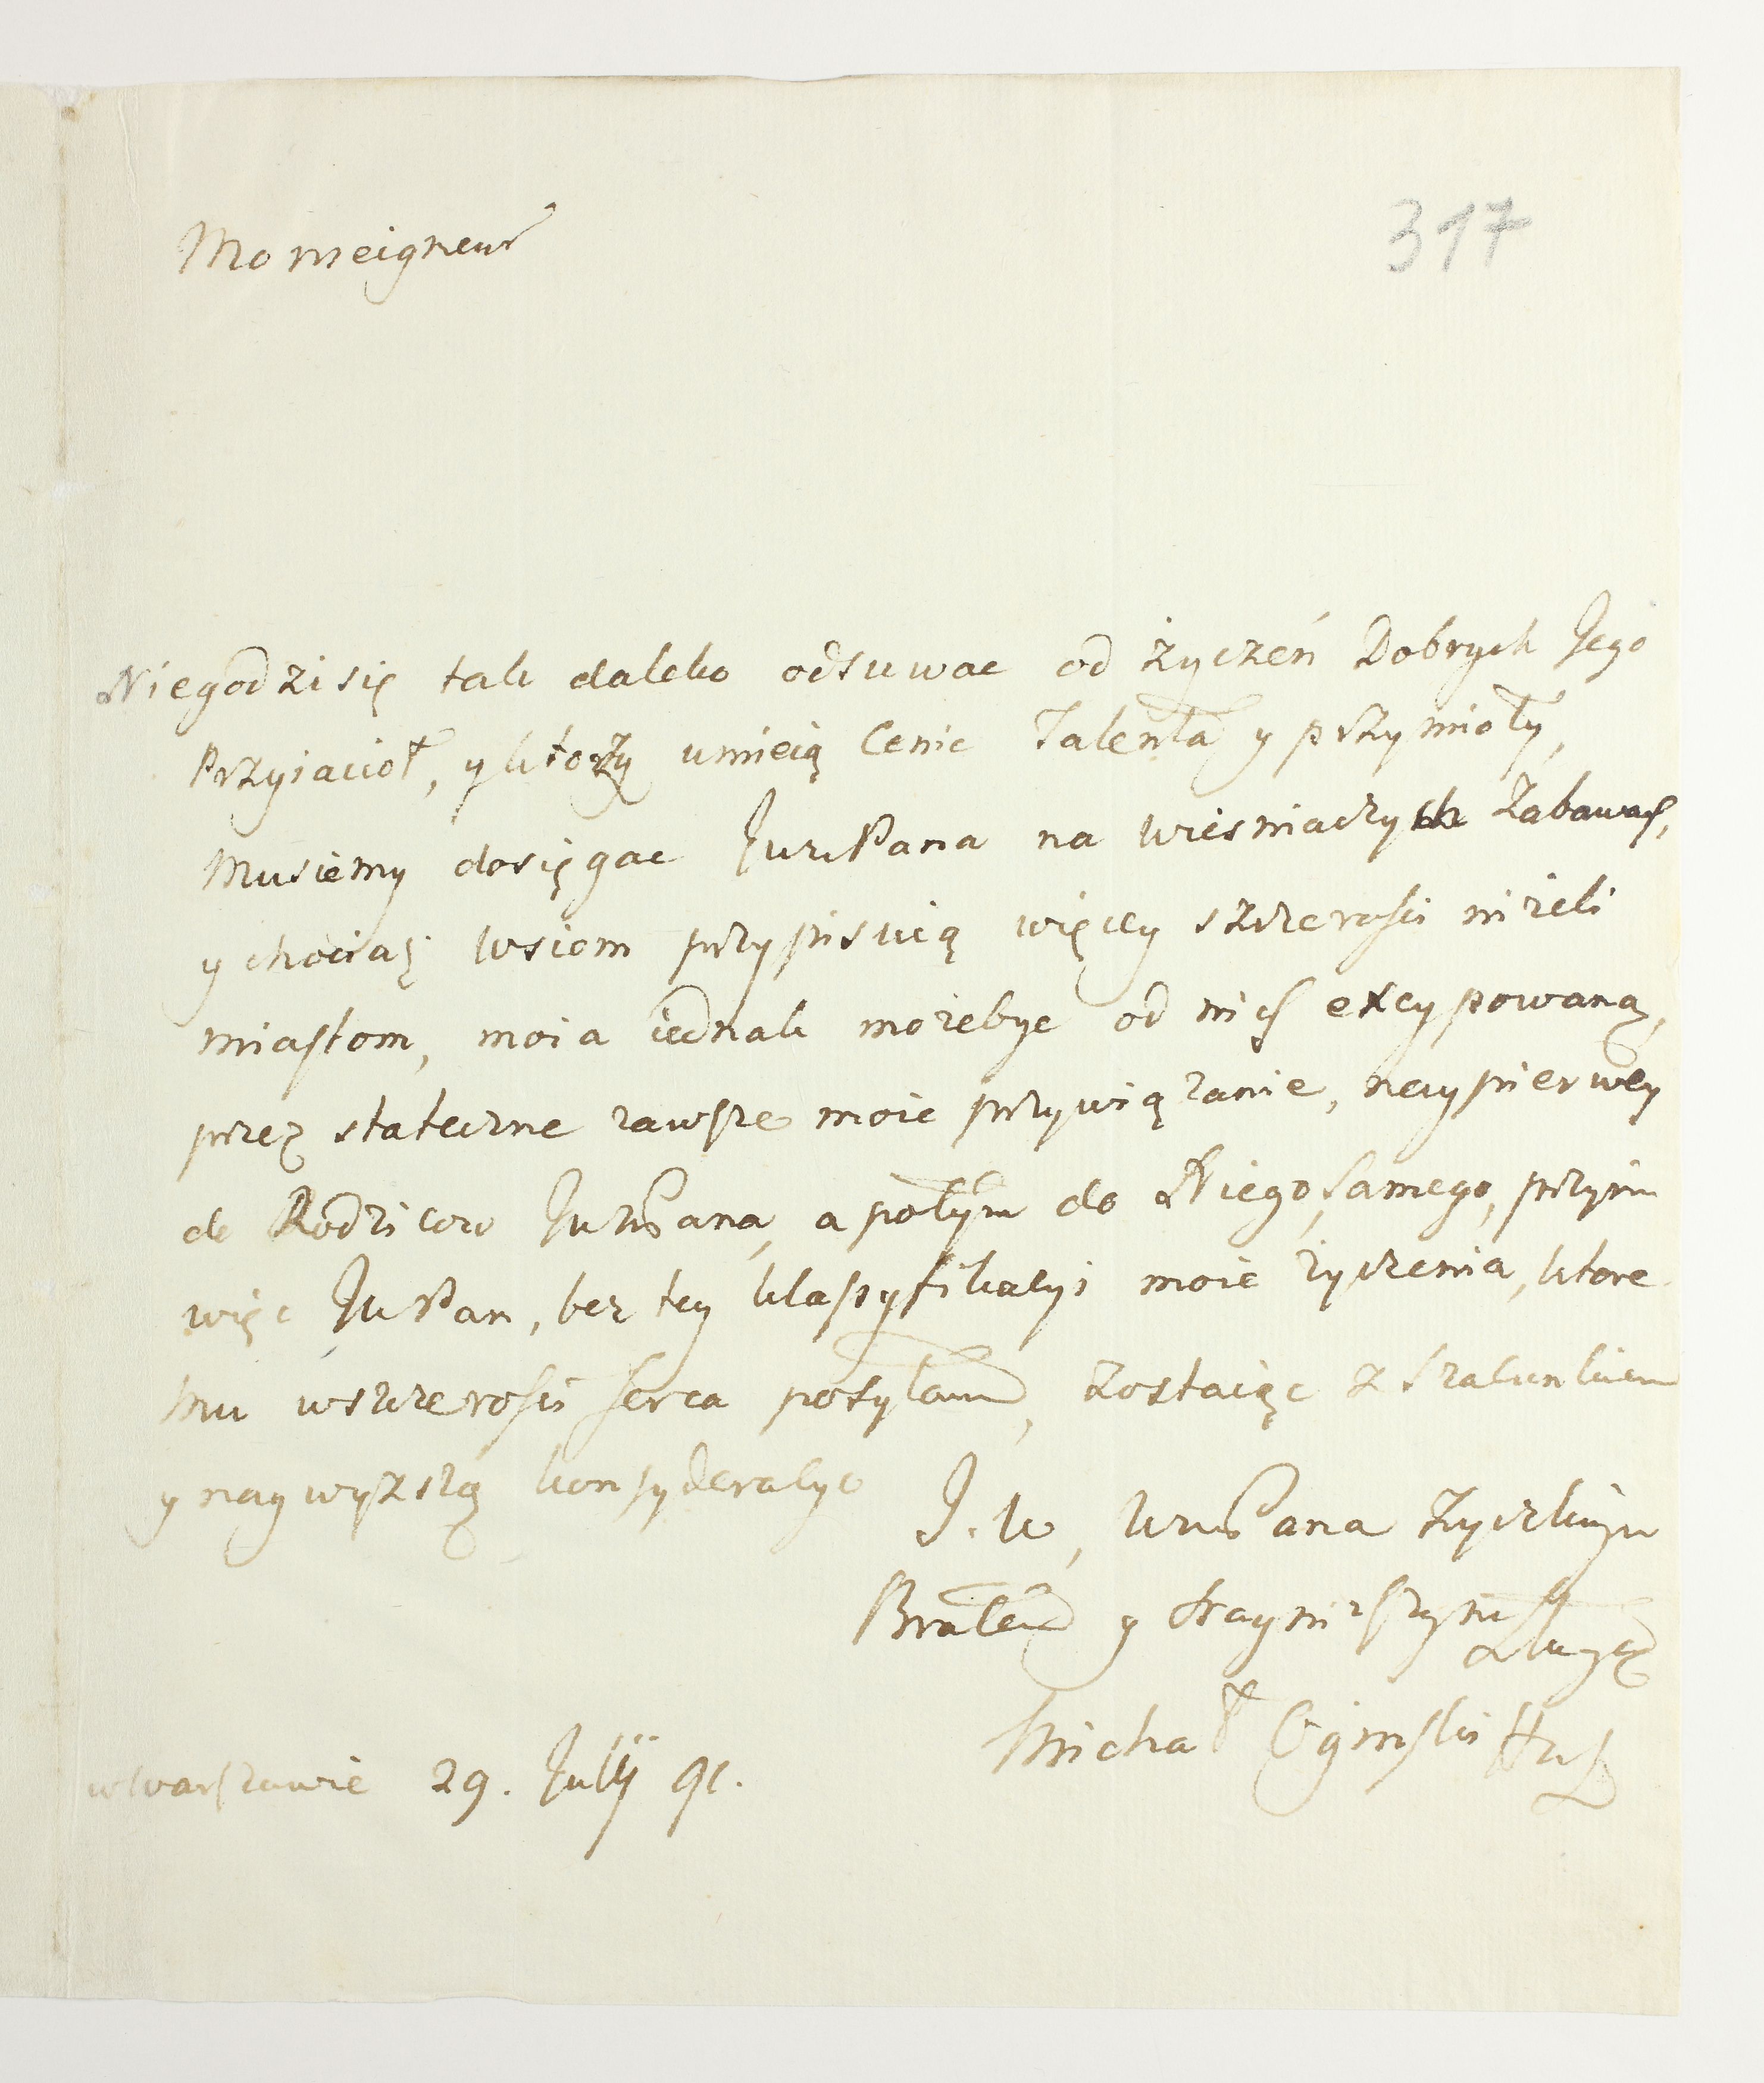 Monseigneur
317
Niegodzi się tak daleko odsuwac od życzeń Dobrych Jego
Przyiacioł, y ktorzy umieią Cenic Talenta y przymioty,
Musiemy dosięgac JWWPana na wiesniaczych Zabawach,
y chociaż wsiom przypisuią więcey szczerosci niżeli
miastom, moia iednak możebyc od nich excypowaną,
przez stateczne zawsze moie przywiązanie, naypierwey
do Rodzicow JWWPana, a potym do Niego samego, przyim
więc JWPan, bez tey klassyfikacyi moie życzenia, ktore
Mu w szczerosci serca posyłam, zostaiąc z szacunkiem
y naywyższą konsyderacyą
J. W, WWPana Życzliwym
Bratem y Naynizszym
Sługą
Michał Ogiński HWL
w Warszawie 29. Julij 91.